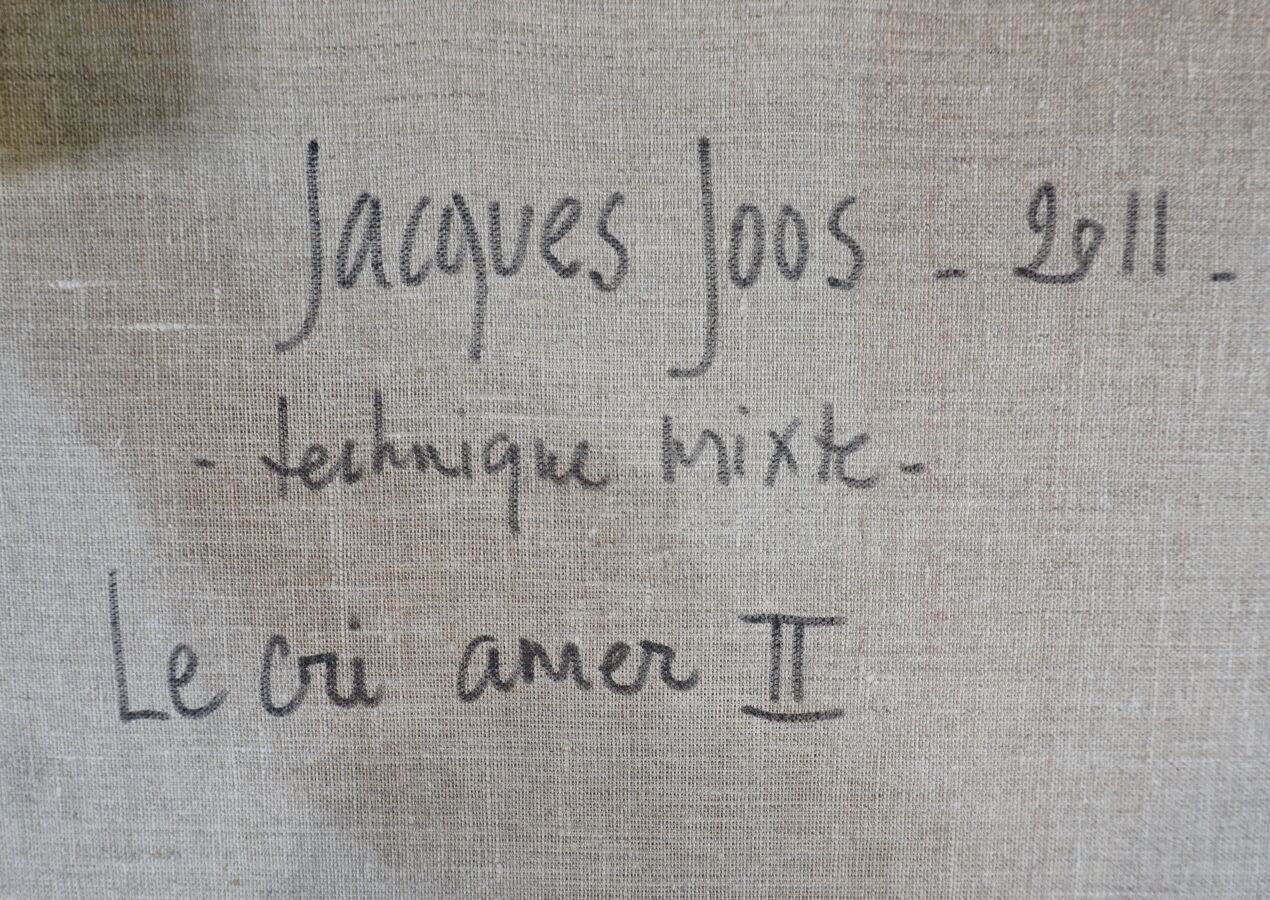 Jacques Joos - 2011 -
- technique mixte -
Le cri amer II